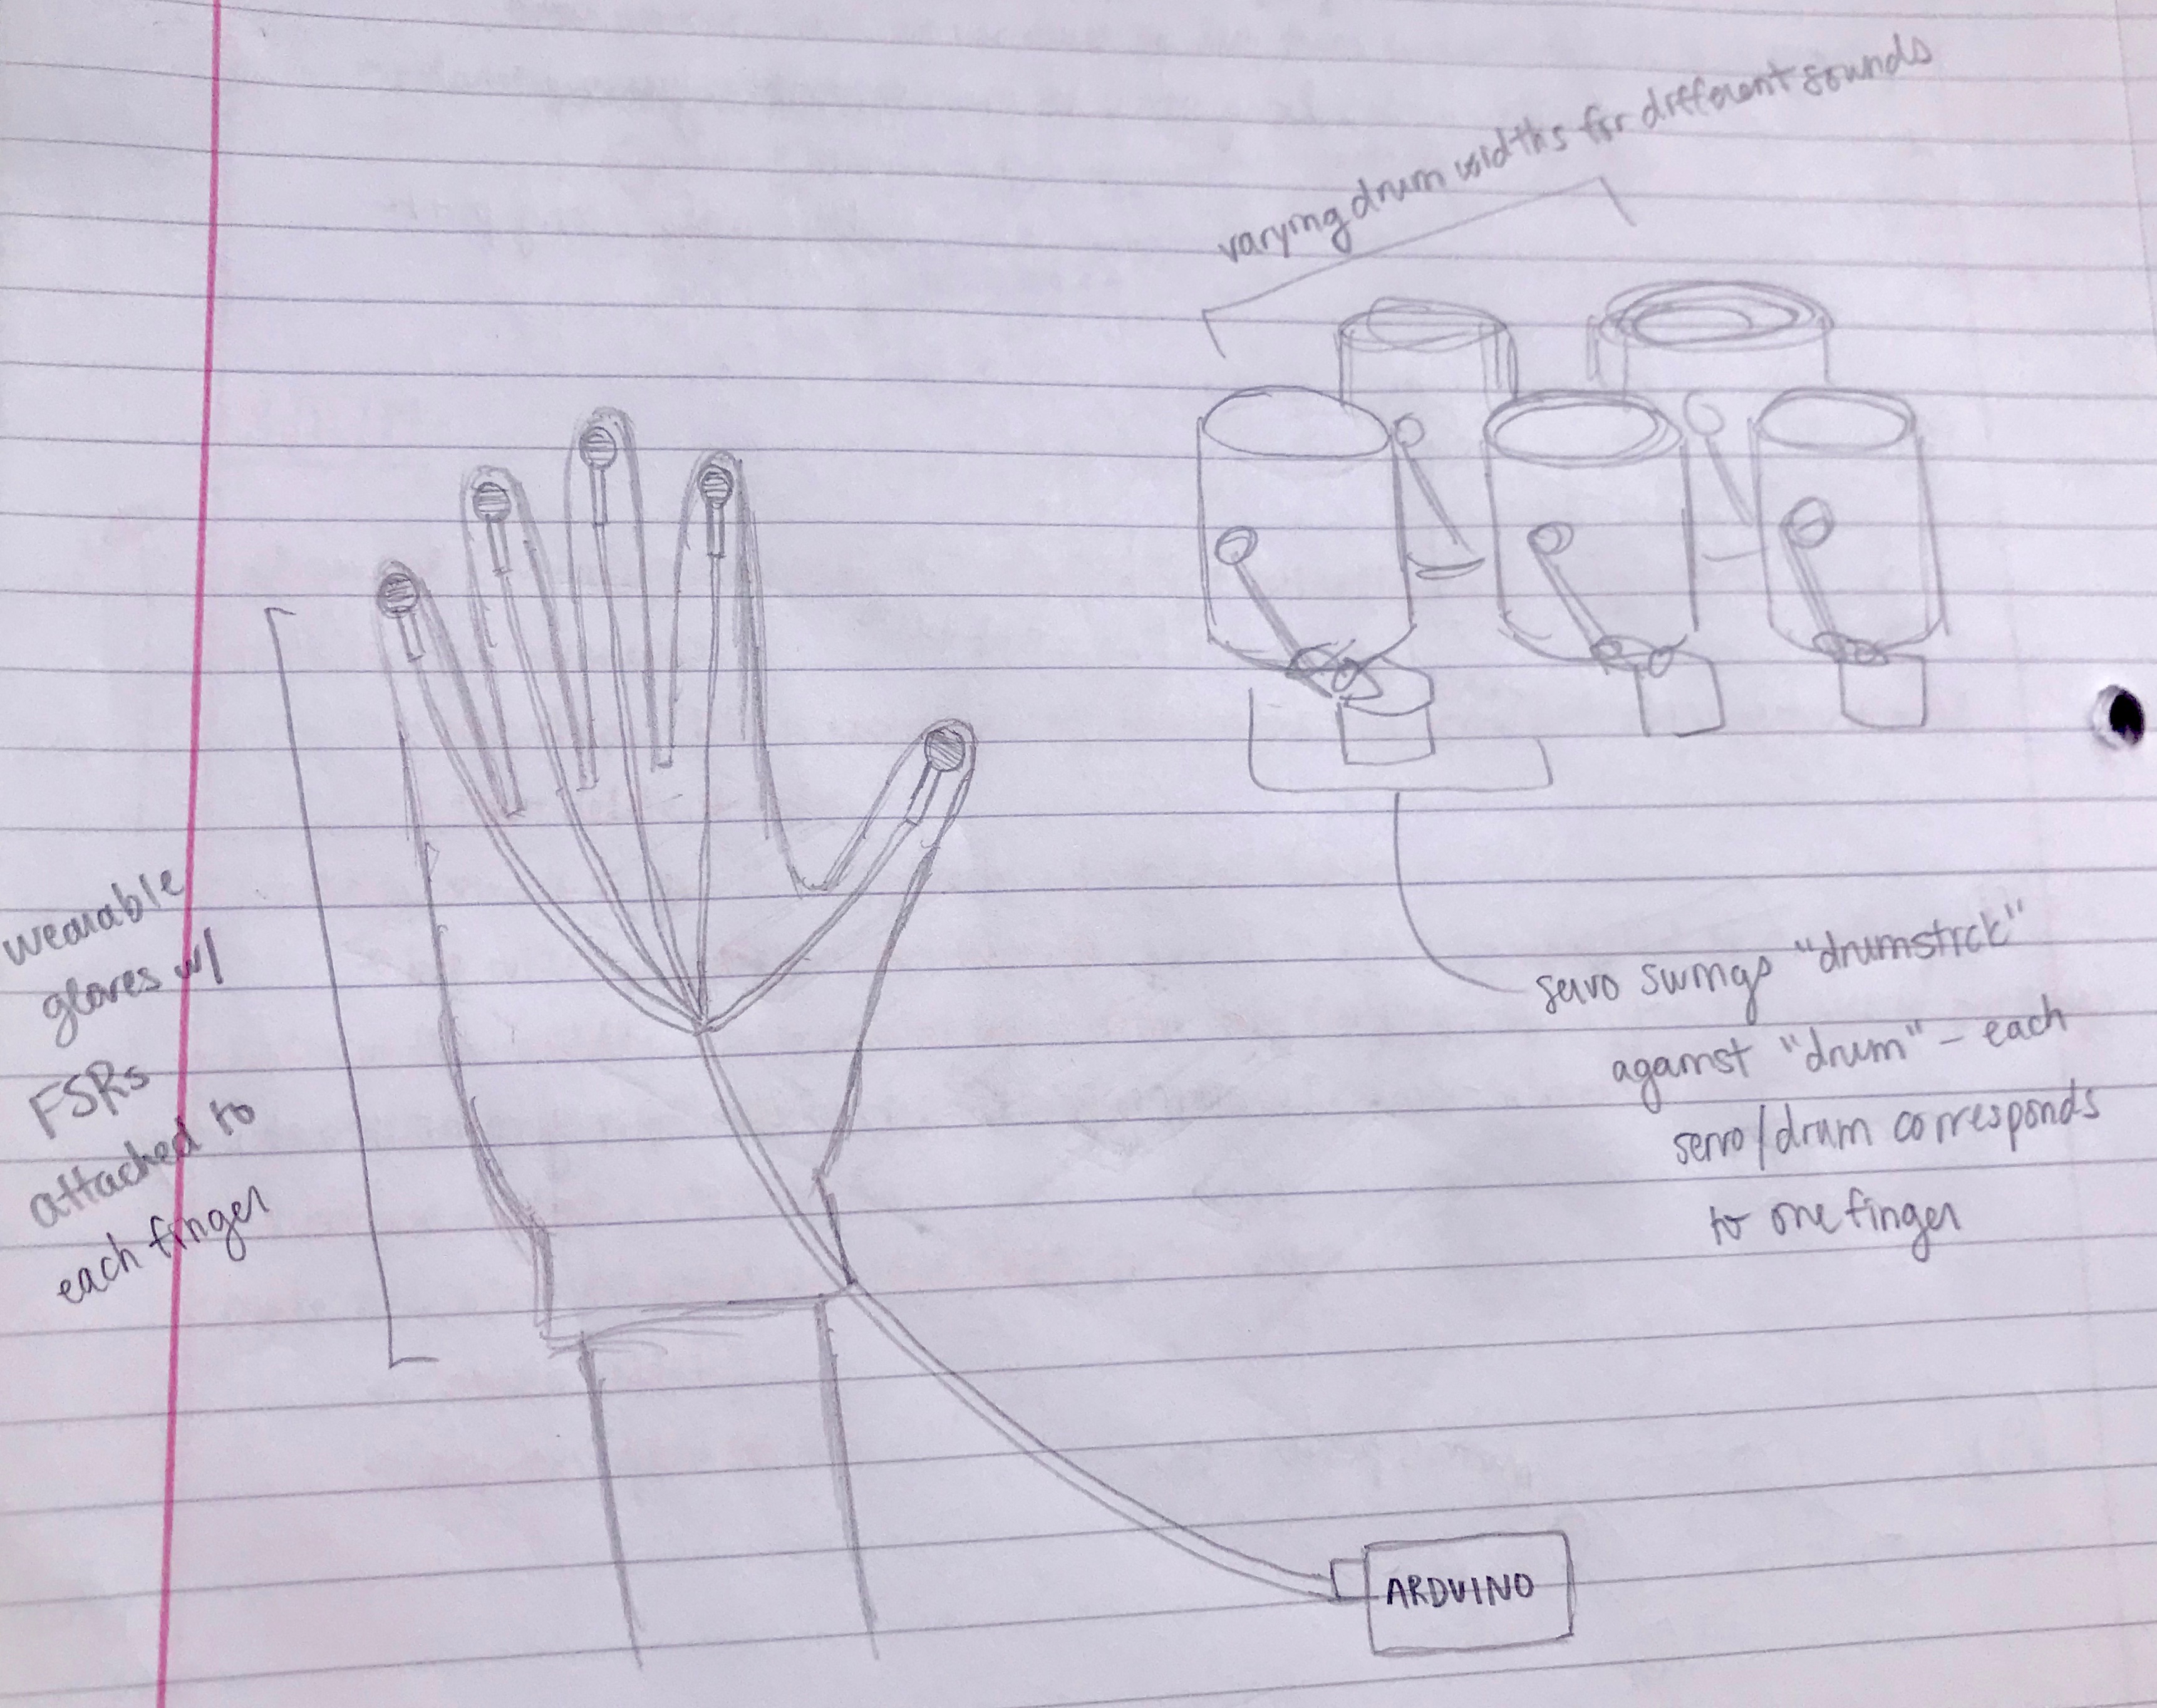 varying drum widths for different sounds
wearable
gloves w/
FSRs
attached to
each finger
servo swings "drumstick"
against "drum" - each
servo/drum corresponds
to one finger
ARDUINO